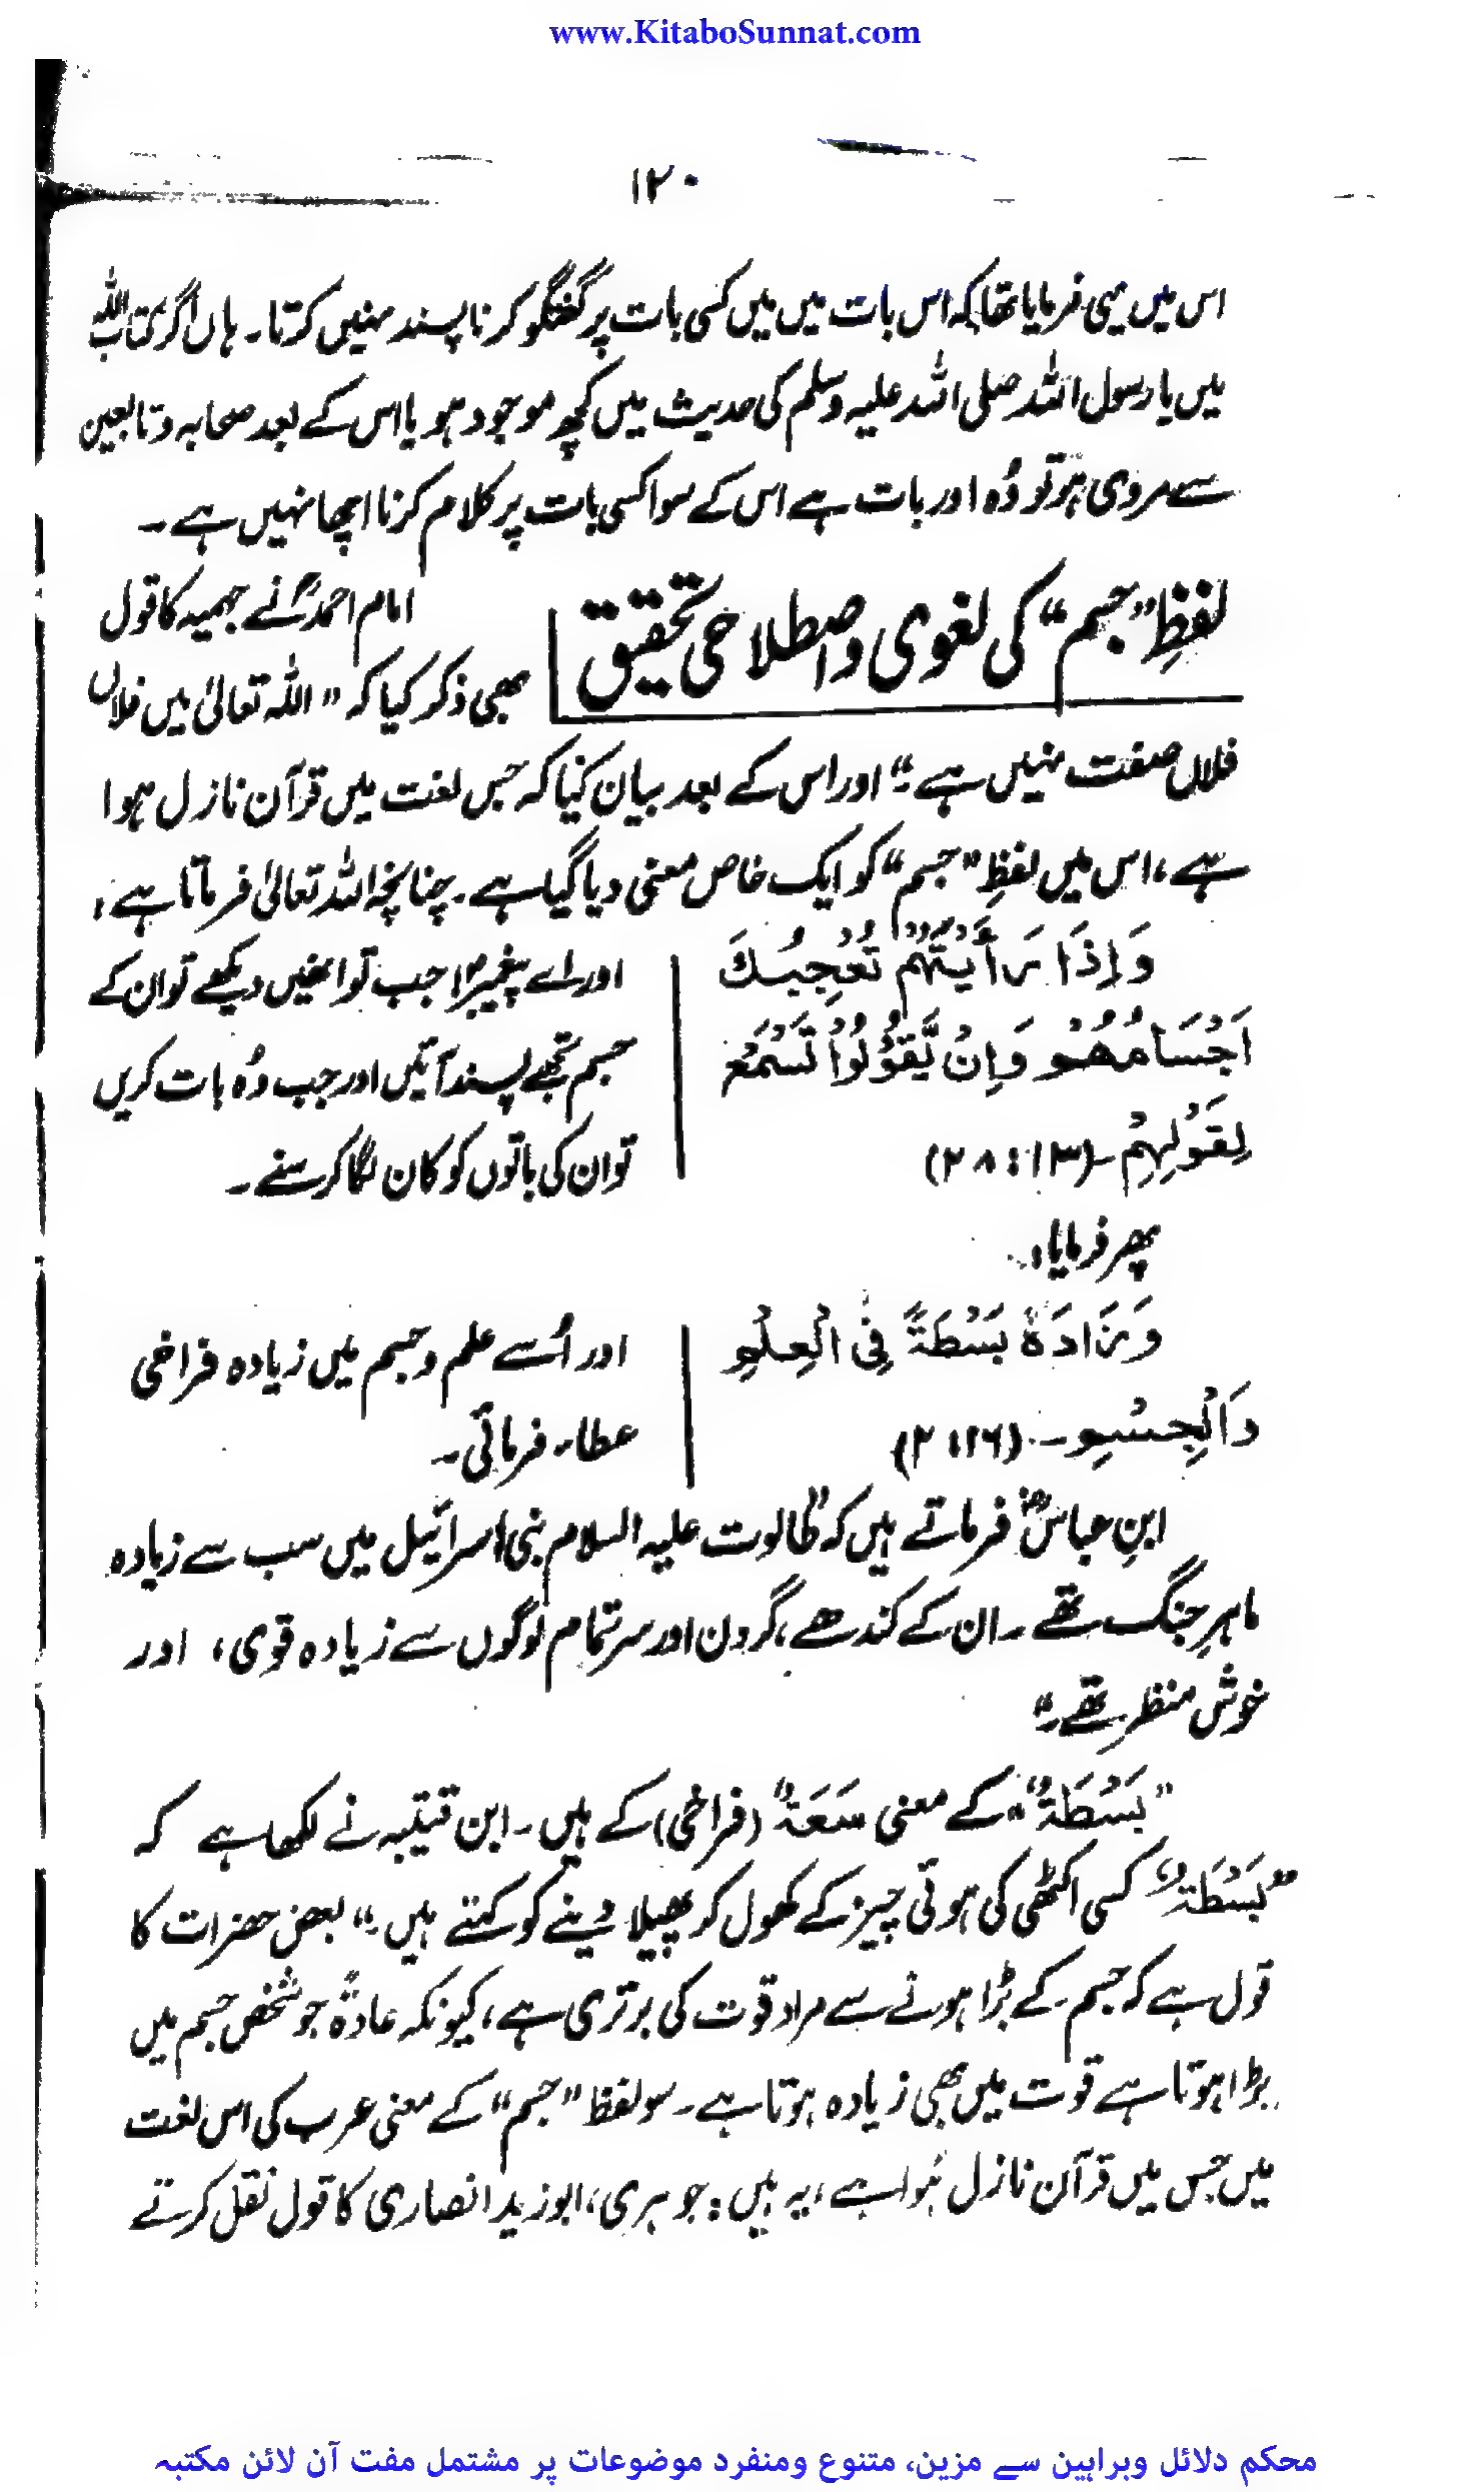 www.KitaboSunnat.com
۱۲۰
اس میں یہی فرمایا تھا کہ اس بات میں میں کسی بات پر گفتگو کرنا پسند نہیں کرتا۔ ہاں اگر کتاب اللہ
میں یا رسول اللہ صلی اللہ علیہ وسلم کی حدیث میں کچھ موجود ہو یا اس کے بعد صحابہ و تابعین
سے مروی ہو تو وُہ اور بات ہے اس کے سوا کسی بات پر کلام کرنا اچھا نہیں ہے ۔
لفظِ "جسم" کی لغوی و اصطلاحی تحقیق
امام احمدؒ نے جہمیہ کا قول
بھی ذکر کیا کہ "اللہ تعالیٰ میں فلاں
فلاں صفت نہیں ہے ۔" اور اس کے بعد بیان کیا کہ جس لغت میں قرآن نازل ہوا
ہے ، اس میں لفظِ "جسم" کو ایک خاص معنی دیا گیا ہے ۔ چنانچہ اللہ تعالیٰ فرماتا ہے :
وَاِذَا رَأَيْتَهُمْ تُعْجِبُكَ
اَجْسَامُهُمْ وَاِنْ يَّقُوْلُوْا تَسْمَعْ
لِقَوْلِهِمْ ۔ (۲۸:۱۳)
اور اے پیغمبرؐ! جب تو انھیں دیکھے تو ان کے
جسم تجھے پسند آئیں اور جب وُہ بات کریں
تو ان کی باتوں کو کان لگا کر سنے ۔
پھر فرمایا :
وَزَادَهٗ بَسْطَةً فِى الْعِلْمِ
وَالْجِسْمِ ۔ (۲:۱۶)
اور اُسے علم و جسم میں زیادہ فراخی
عطاء فرمائی ۔
ابنِ عباسؓ فرماتے ہیں کہ "طالوت علیہ السلام بنی اسرائیل میں سب سے زیادہ
ماہرِ جنگ تھے ۔ ان کے کندھے ، گردن اور سر تمام لوگوں سے زیادہ قوی ، اور
خوش منظر تھے ۔"
"بَسْطَةٌ" کے معنی سَعَةٌ (فراخی) کے ہیں ۔ ابن قتیبہ نے لکھا ہے کہ
"بَسْطَةٌ کسی اکٹھی کی ہوئی چیز کے کھول کر پھیلا دینے کو کہتے ہیں ۔" بعض حضرات کا
قول ہے کہ جسم کے بڑا ہونے سے مراد قوت کی برتری ہے ، کیونکہ عادۃً جو شخص جسم میں
بڑا ہوتا ہے قوت میں بھی زیادہ ہوتا ہے ۔ سو لفظ "جسم" کے معنی عرب کی اس لغت
میں جس میں قرآن نازل ہُوا ہے ، یہ ہیں : جوہری ، ابو زید انصاری کا قول نقل کرتے
محکم دلائل وبراہین سے مزین، متنوع ومنفرد موضوعات پر مشتمل مفت آن لائن مکتبہ